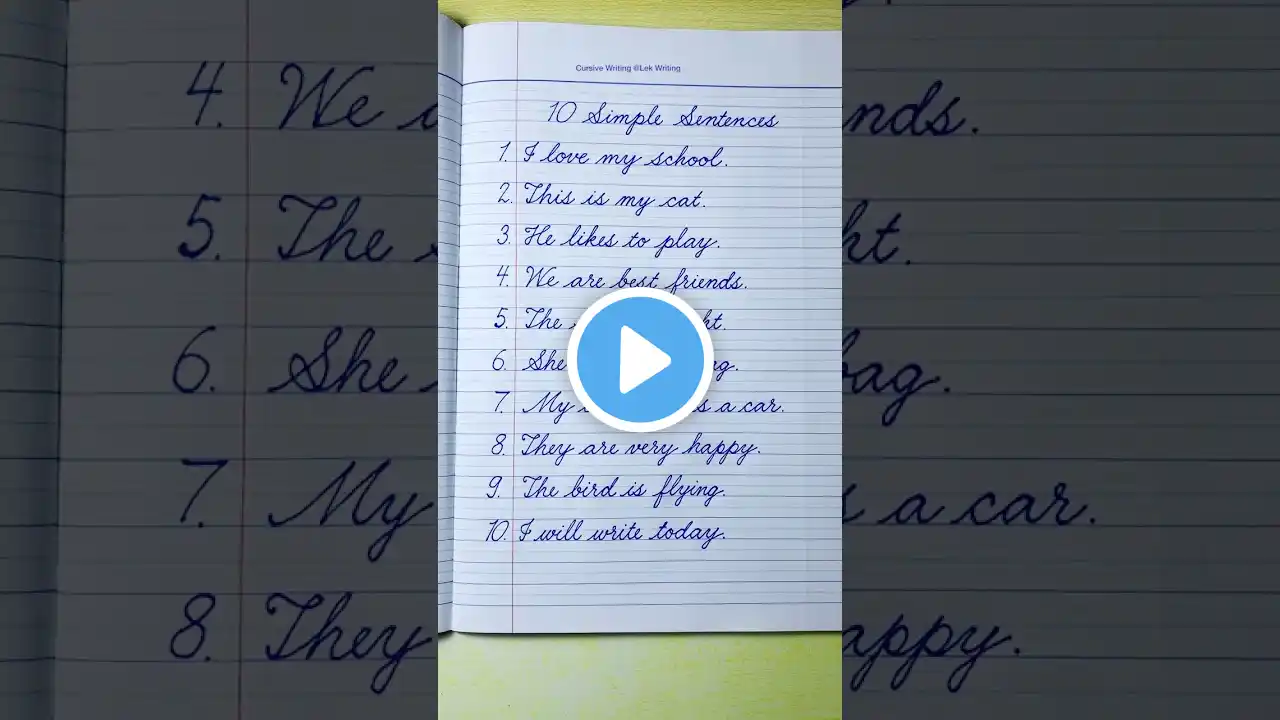 Cursive Writing @Lek Writing
10 Simple Sentences
1. I love my school.
2. This is my cat.
3. He likes to play.
4. We are best friends.
5. The
6. She
7. My a car.
8. They are very happy.
9. The bird is flying.
10. I will write today.